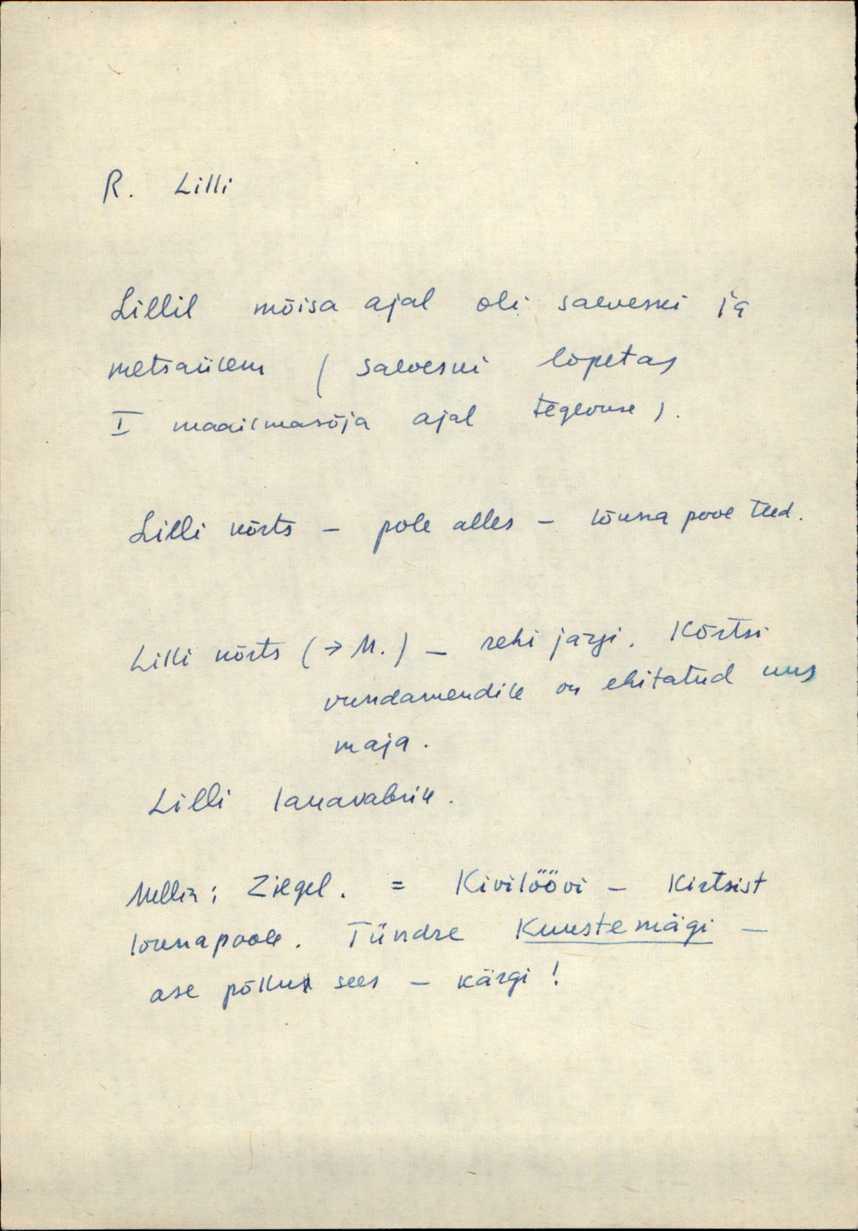 R. Lilli
Lillil mõisa ajal oli saeveski ja
metsaülem (saeveski lõpetas
I maailmasõja ajal tegevuse).
Lilli kõrts – pole alles – lõuna pool teed.
Lilli kõrts (→ M.) – rehi järgi. Kõrtsi
vundamendile on ehitatud uus
maja.
Lilli lauavabrik.
Mellin: Ziegel. = Kivilöövi – Kirtsist
lõunapoole. Tündre Kuustemägi –
ase põllu sees – kärgi!